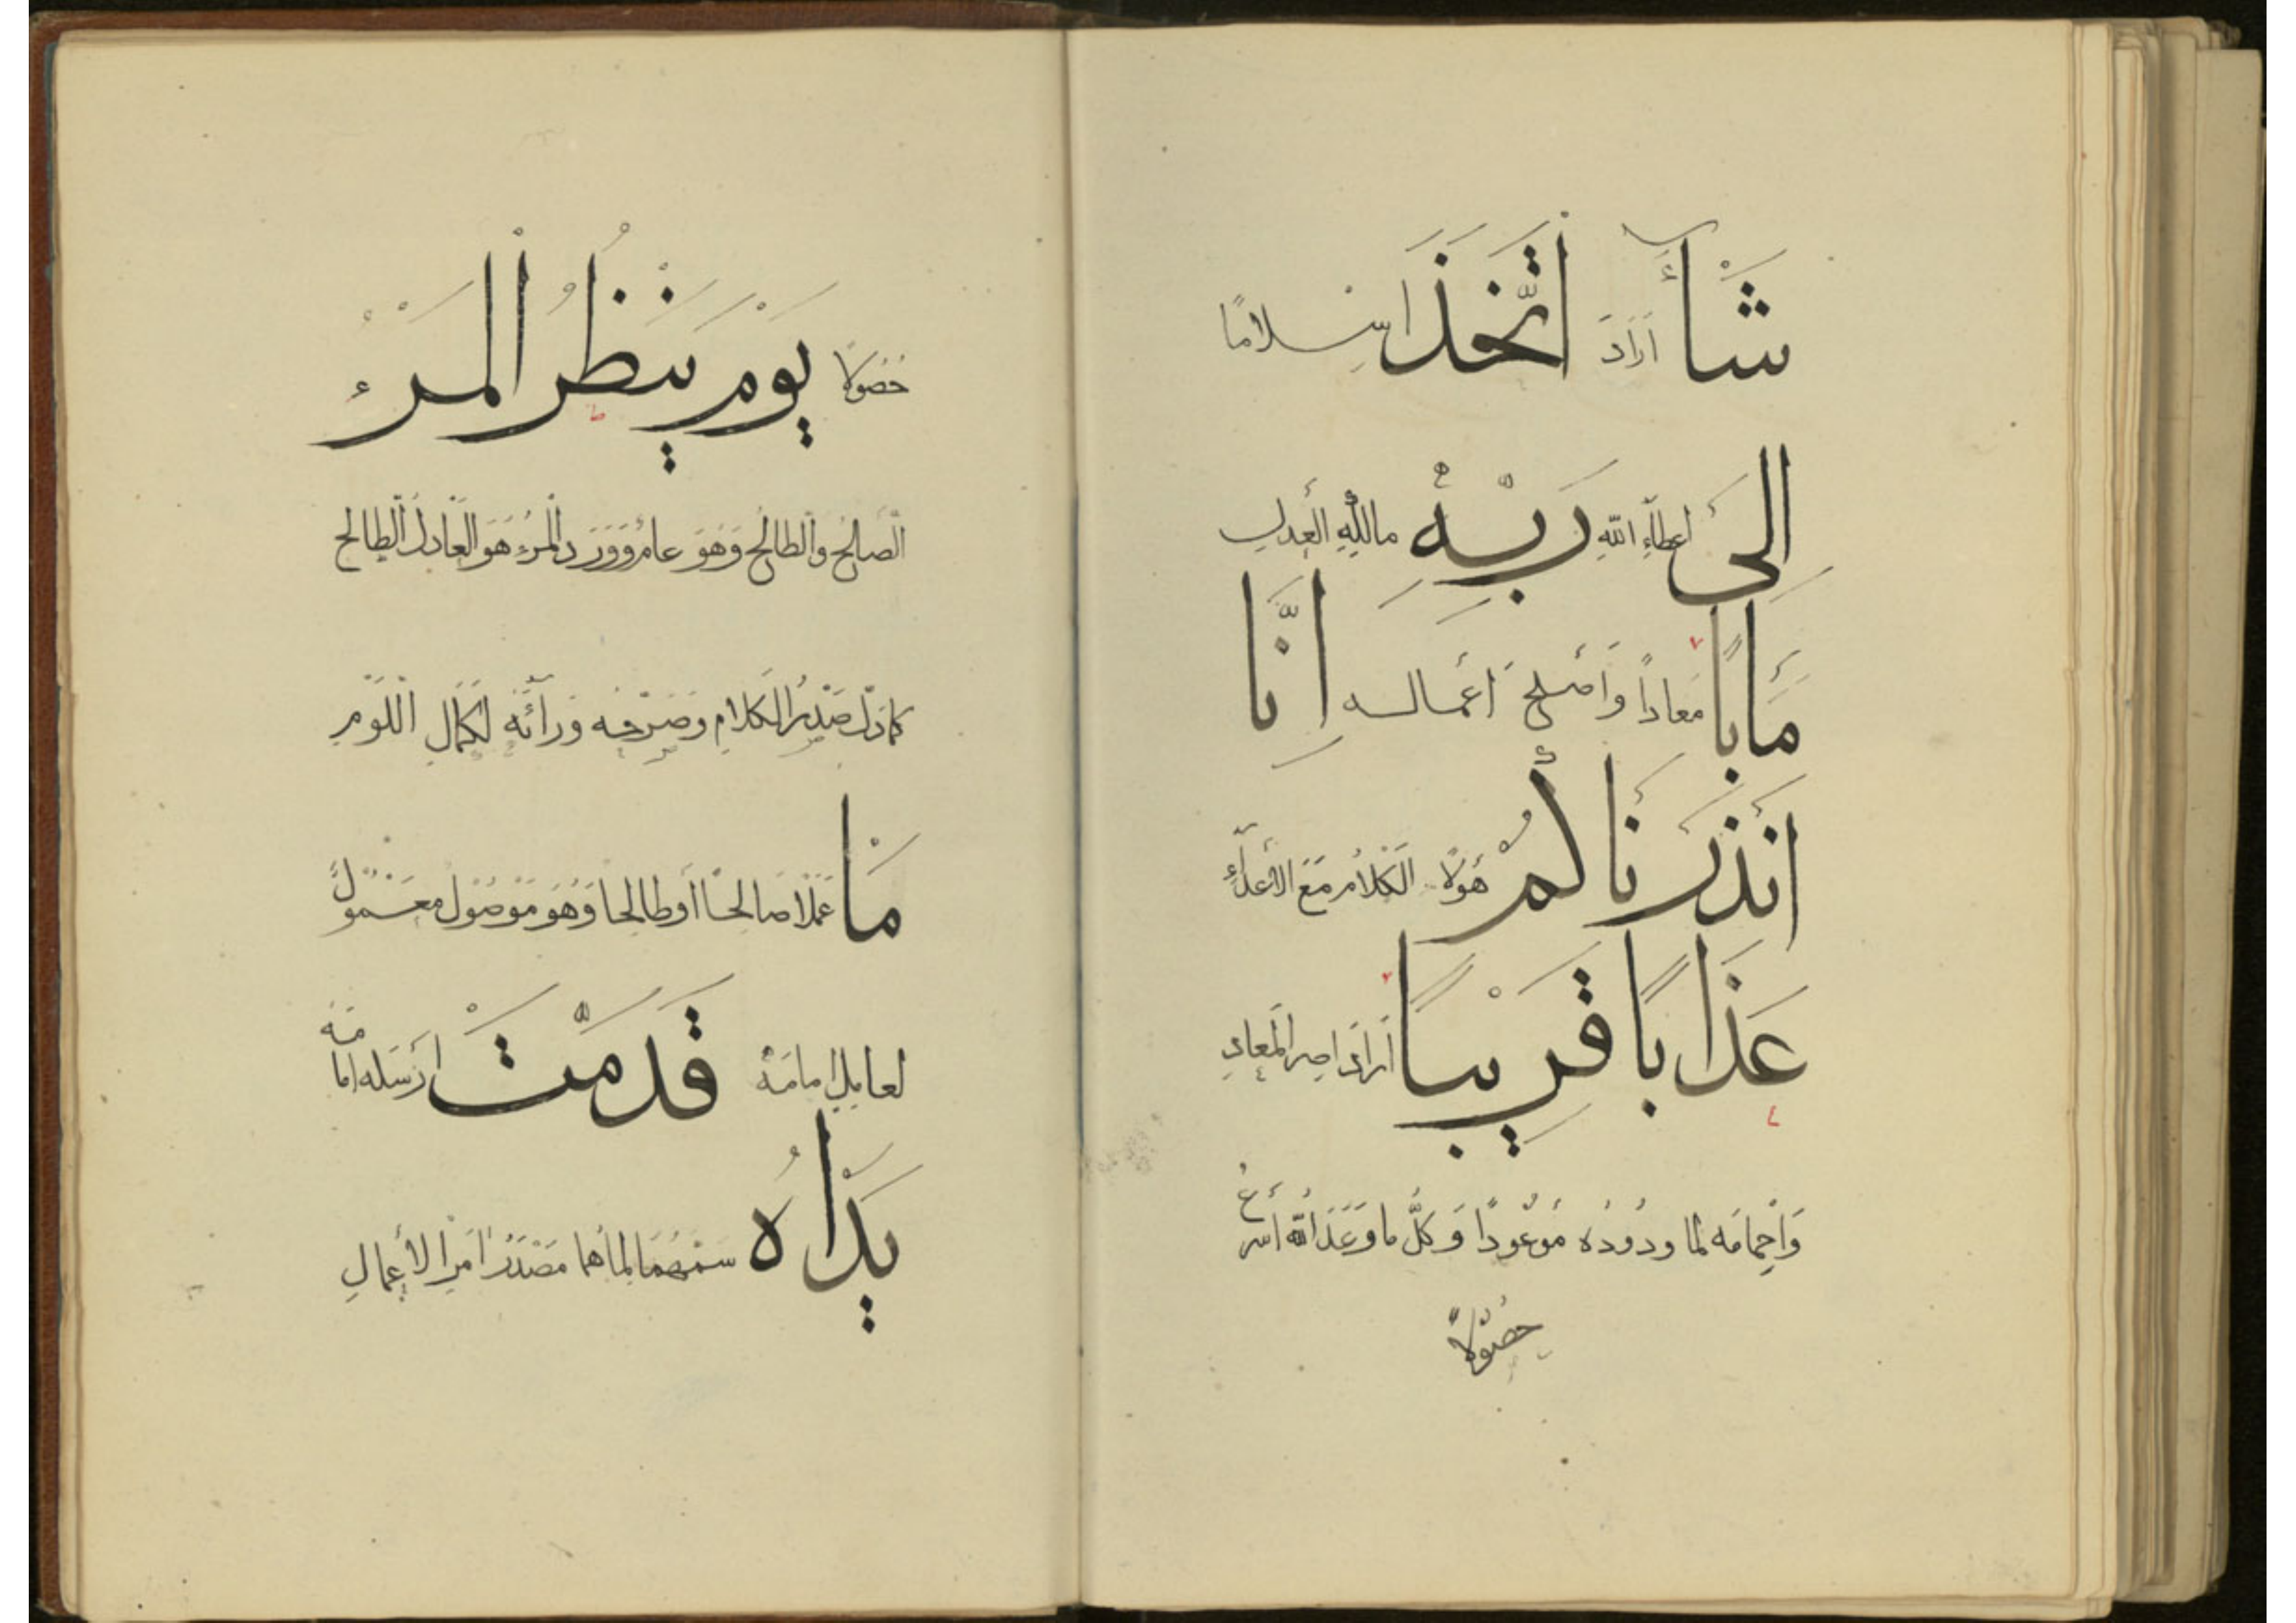 شَآءَ اَرَادَ اتَّخَذَ اسلامًا
اِلىٰ اعطآءِ اللّٰهِ رَبِّهٖ مالكِ العدلِ
مَاٰبًا مَعادًا وَاَصْلَحَ اَعْمالَه اِنَّا
اَنْذَرْنَاكُمْ هَؤُلَآ الكَلامُ مَعَ الاَعْدآءِ
عَذَابًا قَرِيْبًا اَرادَ اِصْرَ المعادِ
وَاِحْمامَه لما وُرُوْدُه مَوْعُودًا وَكلُّ ما وَعَدَ اللّٰهُ اَسْرَعُ
حُصُوْلاً
حُصُوْلاً يَوْمَ يَنْظُرُ الْمَرْءُ
الصَّالحُ والطَّالحُ وَهُوَ عامٌّ وَوَرَدَ المَرْءُ هُوَ العَادلُ الطَّالحُ
كمادلَّ صَدْرُ الكَلامِ وَصَرْحُه وَرَآءَه لكَمَالِ اللَّوْمِ
مَا عَمَلًا صَالحًا اَوْطالحًا وَهُوَ مَوْصُوْلٌ مَعْمُوْلٌ
لعاملٍ اَمامَهُ قَدَّمَتْ اَرْسَلَه اَمامَه
يَدَاهُ سَمّٰهُمَا لماهُما مَصْدَرُ اَمْرِ الاَعْمالِ